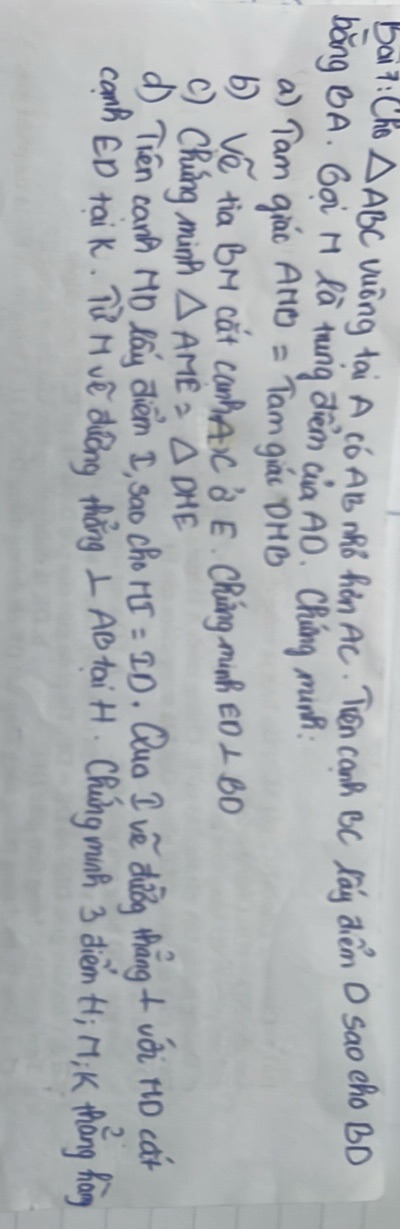 Bài 7: Cho △ABC vuông tại A có AB nhỏ hơn AC. Trên cạnh BC lấy điểm D sao cho BD
bằng BA. Gọi M là trung điểm của AD. Chứng minh:
a) Tam giác AMB = Tam giác DMB
b) Vẽ tia BM cắt cạnh AC ở E. Chứng minh ED ⊥ BD
c) Chứng minh △AME = △DME
d) Trên cạnh MD lấy điểm I, sao cho MI = ID. Qua I vẽ đường thẳng ⊥ với MD cắt
cạnh ED tại K. Từ M vẽ đường thẳng ⊥ AB tại H. Chứng minh 3 điểm H; M; K thẳng hàng